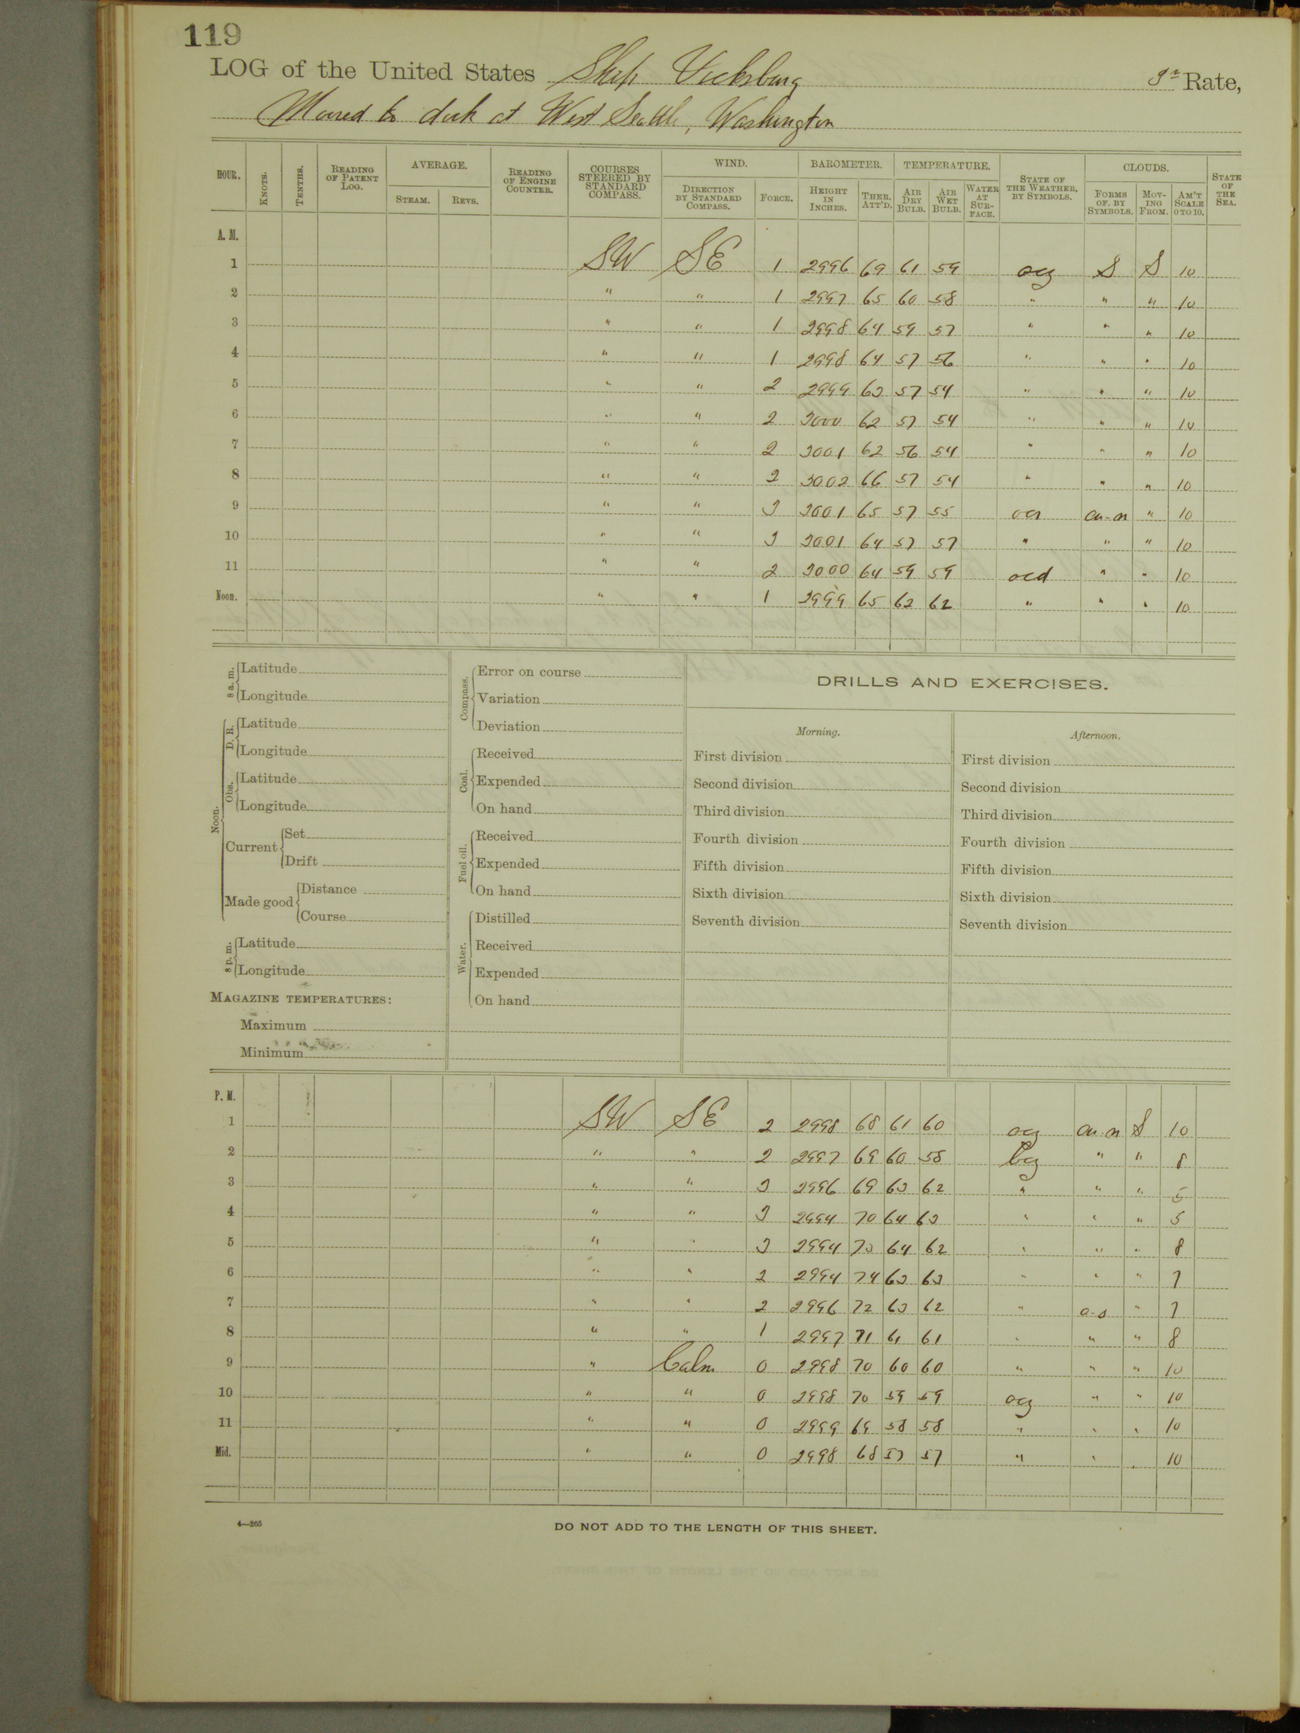 119
LOG of the United States Ship Vicksburg 3d Rate,
Moored to dock at West Seattle, Washington
HOUR. KNOTS. TENTHS. READING OF PATENT LOG. AVERAGE. STEAM. REVS. READING OF ENGINE COUNTER. COURSES STEERED BY STANDARD COMPASS. WIND. DIRECTION BY STANDARD COMPASS. FORCE. BAROMETER. HEIGHT IN INCHES. THER. ATT'D. TEMPERATURE. AIR DRY BULB. AIR WET BULB. WATER AT SURFACE. STATE OF THE WEATHER, BY SYMBOLS. CLOUDS. FORMS OF, BY SYMBOLS. MOVING FROM. AM'T SCALE 0 TO 10. STATE OF THE SEA.
A. M.
1 SW SE 1 2996 69 61 59 ocg S S 10
2 " " 1 2997 65 60 58 " " " 10
3 " " 1 2998 64 59 57 " " " 10
4 " " 1 2998 64 57 56 " " " 10
5 " " 2 2999 63 57 54 " " " 10
6 " " 2 3000 62 57 54 " " " 10
7 " " 2 3001 62 56 54 " " " 10
8 " " 2 3002 66 57 54 " " " 10
9 " " 3 3001 65 57 55 ocr cu-n " 10
10 " " 3 3001 64 57 57 " " " 10
11 " " 2 3000 64 59 59 ocd " " 10
Noon. " " 1 2999 65 62 62 " " " 10
8 a. m. Latitude
Longitude
Noon. D. R. Latitude
Longitude
Obs. Latitude
Longitude
Current Set
Drift
Made good Distance
Course
8 p. m. Latitude
Longitude
MAGAZINE TEMPERATURES:
Maximum
Minimum
Compass. Error on course
Variation
Deviation
Coal. Received
Expended
On hand
Fuel oil. Received
Expended
On hand
Water. Distilled
Received
Expended
On hand
DRILLS AND EXERCISES.
Morning.
First division
Second division
Third division
Fourth division
Fifth division
Sixth division
Seventh division
Afternoon.
First division
Second division
Third division
Fourth division
Fifth division
Sixth division
Seventh division
P. M.
1 SW SE 2 2998 68 61 60 ocg cu-n S 10
2 " " 2 2997 69 60 58 bcg " " 8
3 " " 3 2996 69 63 62 " " " 5
4 " " 3 2994 70 64 63 " " " 5
5 " " 3 2994 73 64 62 " " " 8
6 " " 2 2994 74 63 63 " " " 7
7 " " 2 2996 72 63 62 " a-s " 7
8 " " 1 2997 71 61 61 " " " 8
9 " Calm 0 2998 70 60 60 " " " 10
10 " " 0 2998 70 59 59 ocg " " 10
11 " " 0 2999 69 58 58 " " " 10
Mid. " " 0 2998 68 57 57 " " " 10
4—265
DO NOT ADD TO THE LENGTH OF THIS SHEET.